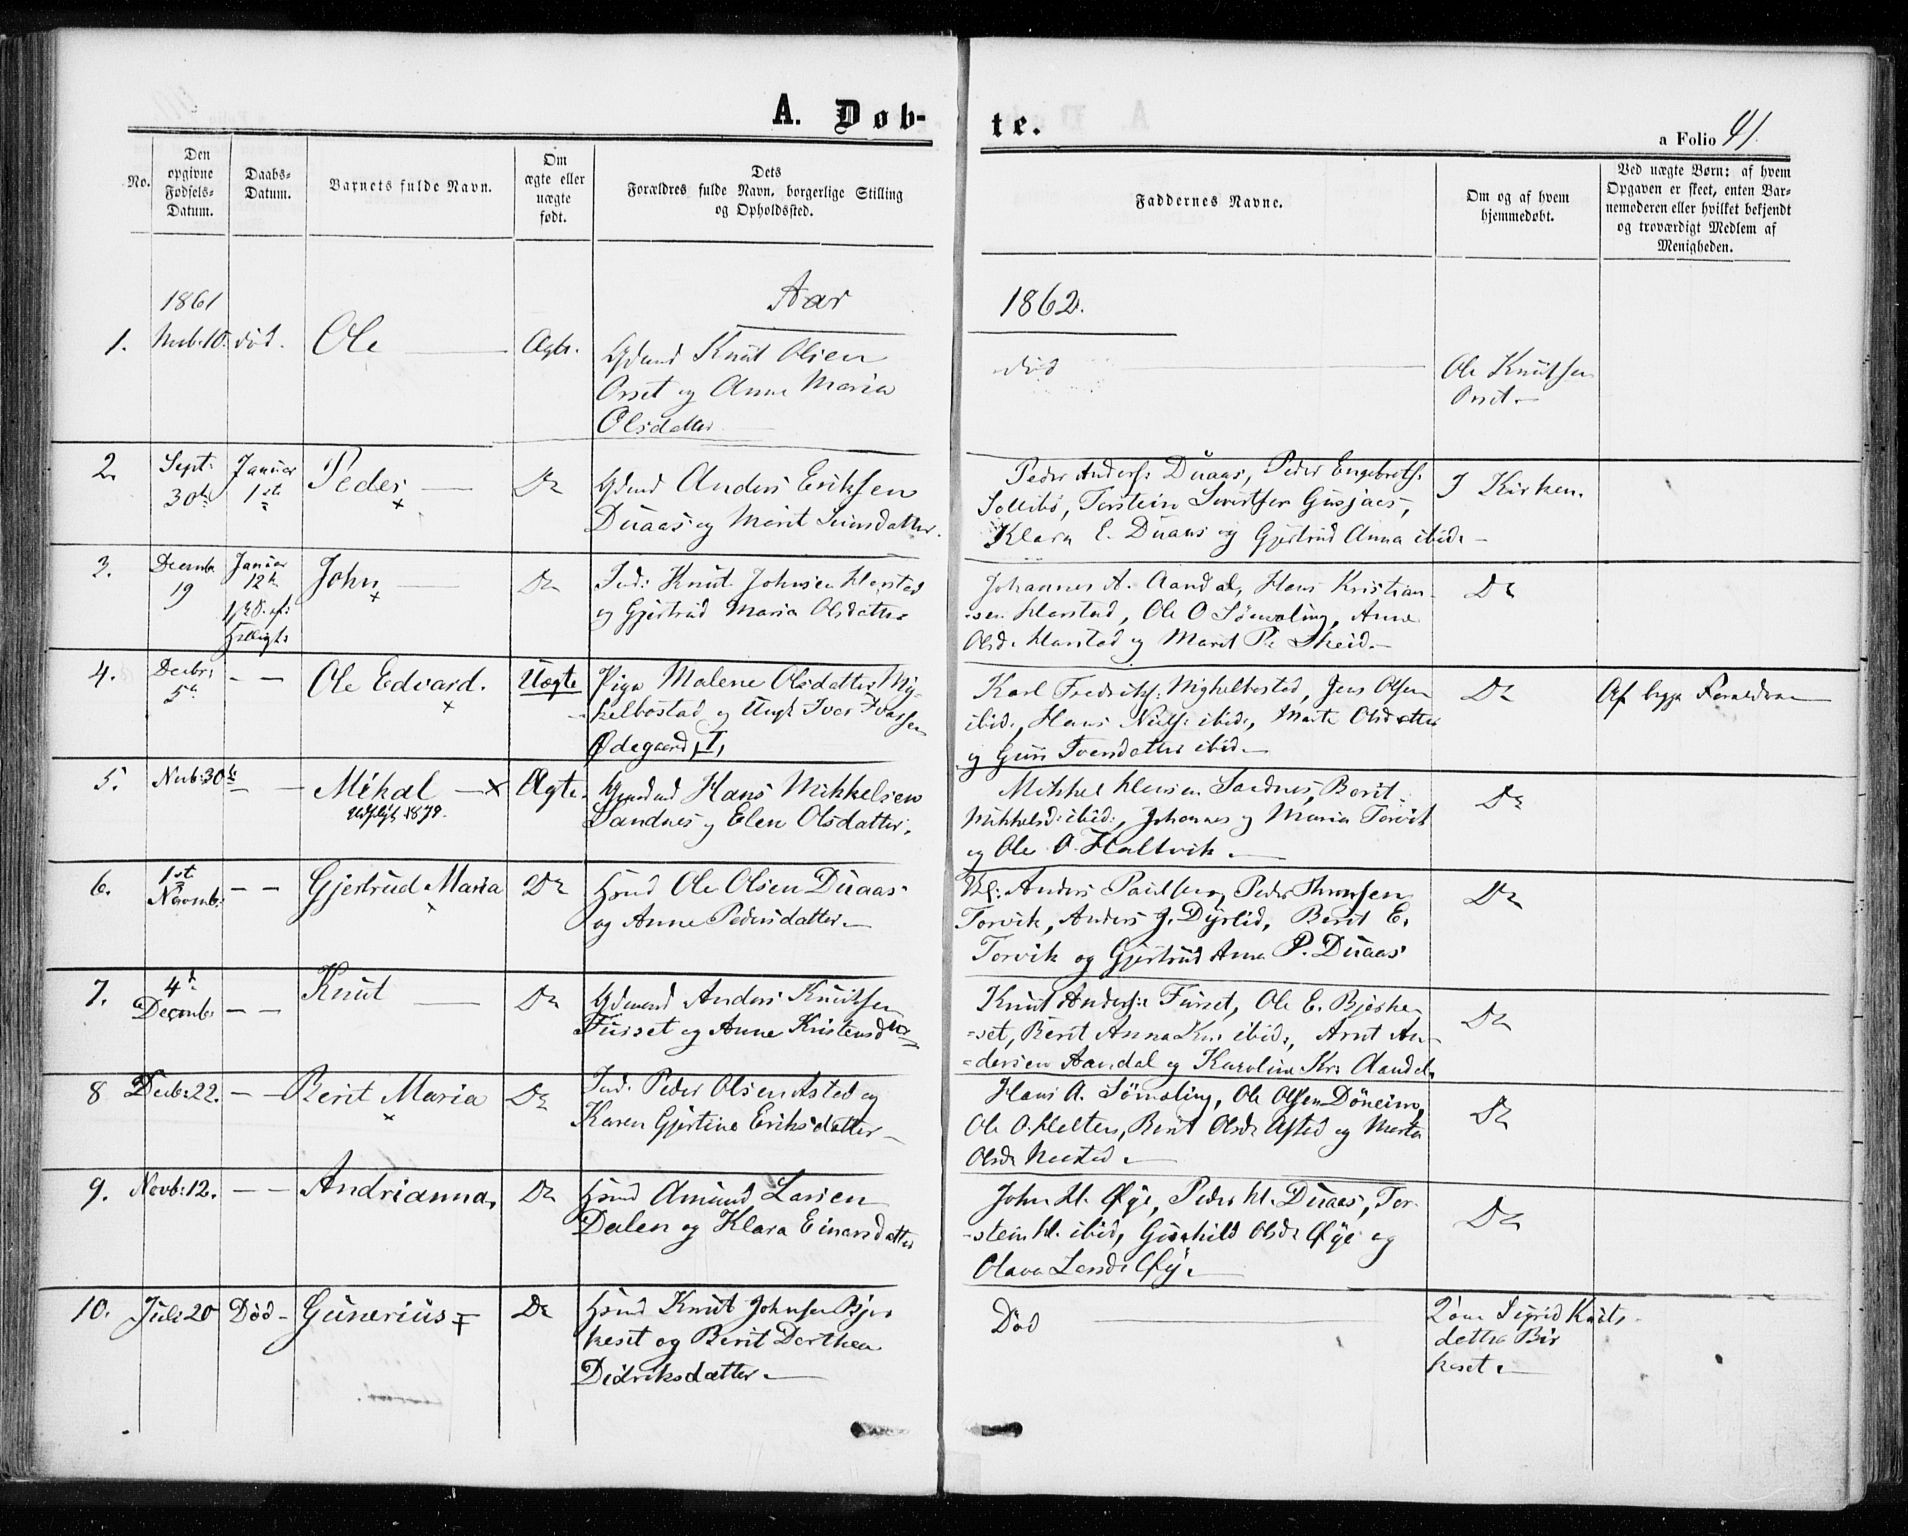 A. Døb-
te.
a Folio 41.
No.
Den opgivne Fødsels-Datum.
Daabs-Datum.
Barnets fulde Navn.
Om ægte eller uægte født.
Dets
Forældres fulde Navn, borgerlige Stilling
og Opholdssted.
Faddernes Navne.
Om og af hvem hjemmedøbt.
Ved uægte Børn: af hvem
Opgaven er skeet, enten Bar-
nemoderen eller hvilket bekjendt
og troværdigt Medlem af
Menigheden.
1861
Aar
1862.
1. 10. død. Ole Ægte.
Knut Olsen
Orset og Anne Maria
Olsdatter
død
Ole Knutsen
Orset.
2. Sept: 30te Januar 1ste Peder Do
Gdmd Anders Eriksen
Duaas og Marit
Peder Anders: Duaas, Peder Engebrets:
Torstein
Klara E. Duaas og Gjertrud Anna ibid.
I Kirken.
3. Decmb 19 Januar 12te John Do
Ind: Knut Johnsen Harstad
og Gjertrud Maria Olsdatter
Johannes A. Aandal, Hans Kristian-
sen Harstad, Ole O Sømoling, Anne
Olsd. Harstad og Marit P. Skeid.
Do
4. Decbr: 5te - - Ole Edvard. Uægte
Pige Malene Olsdatter My-
kelbostad og Ungk Iver Iversen
Ødegaard, I,
Karl Fredriks: Mykelbostad, Jens Olsen
ibid:, Hans Niels: ibid:, Marte Olsdatter
og Guri Svensdatter ibid.
Do
Af begge Forældrene
5. Novb: 30te - - Mikal Ægte.
1879.
Gdmd Hans Mikkelsen
Sandnes og Elen Olsdatter.
Mikkel Hansen Sandnes, Berit
Mikkelsd: ibid:, Johannes og Maria Torvik
og Ole O. Haltvik.
Do
6. 1ste Novemb: - - Gjertrud Maria Do
Hsmd Ole Olsen Duaas
og Anne Pedersdatter.
Anders
Torvik, Anders J. Dyrlid, Berit E.
Torvik og Gjertrud Anna P. Duaas
Do
7. 4de Decembr - - Knut Do
Gdmand Anders Knutsen
Furset og Anne Kristensd
Knut Anders: Furset, Ole E. Bjerke-
-set, Berit Anna Kn: ibid:, Arnt An-
-dersen Aandal og Karoline Kr: Aandal.
Do
8 Decb: 22. - - Berit Maria Do
Ind: Peder Olsen Astad og
Karen Gjertine Eriksdatter
Hans A. Sømoling, Ole Olsen Døneim,
Ole O. Holten, Berit Olsd: Astad og Marta
Olsd:
Do
9. Novb: 12. - - Andrianna. Do
Hsmd Amund Larsen
Dalen og Klara Einarsdatter
John H. Øye, Peder H. Duaas, Tor-
-stein H. ibid, Gunhild Olsd: Øye og
Olava Larsd: Øye.
Do
10. Juli 20 Død - Gunerius Do
Hsmd Knut Johnsen Bjer
keset og Berit Dorthea
Didriksdatter.
Død
Sigrid Knuts
datter Bir
keset.